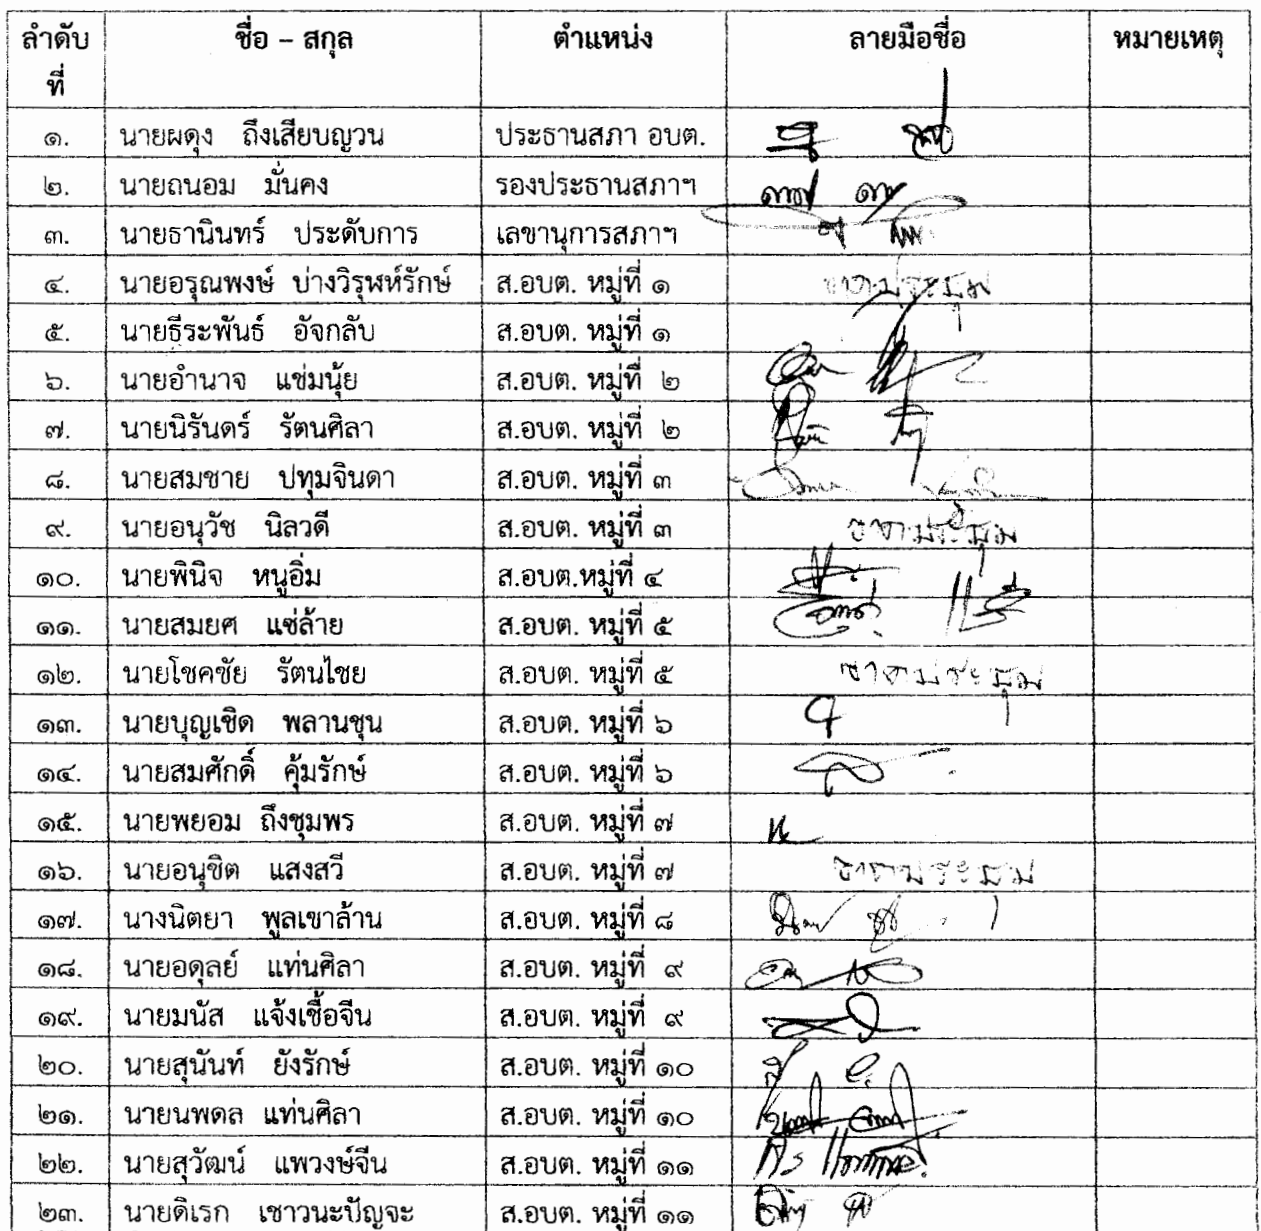 ลำดับที่ ชื่อ – สกุล ตำแหน่ง ลายมือชื่อ หมายเหตุ
๑. นายผดุง ถึงเสียบญวน ประธานสภา อบต.
๒. นายถนอม มั่นคง รองประธานสภาฯ
๓. นายธานินทร์ ประดับการ เลขานุการสภาฯ
๔. นายอรุณพงษ์ บ่างวิรุฬห์รักษ์ ส.อบต. หมู่ที่ ๑ ขาดประชุม
๕. นายธีระพันธ์ อัจกลับ ส.อบต. หมู่ที่ ๑
๖. นายอำนาจ แช่มนุ้ย ส.อบต. หมู่ที่ ๒
๗. นายนิรันดร์ รัตนศิลา ส.อบต. หมู่ที่ ๒
๘. นายสมชาย ปทุมจินดา ส.อบต. หมู่ที่ ๓
๙. นายอนุวัช นิลวดี ส.อบต. หมู่ที่ ๓ ขาดประชุม
๑๐. นายพินิจ หนูอิ่ม ส.อบต.หมู่ที่ ๔
๑๑. นายสมยศ แซ่ล้าย ส.อบต. หมู่ที่ ๕
๑๒. นายโชคชัย รัตนไชย ส.อบต. หมู่ที่ ๕ ขาดประชุม
๑๓. นายบุญเชิด พลานชุน ส.อบต. หมู่ที่ ๖
๑๔. นายสมศักดิ์ คุ้มรักษ์ ส.อบต. หมู่ที่ ๖
๑๕. นายพยอม ถึงชุมพร ส.อบต. หมู่ที่ ๗
๑๖. นายอนุชิต แสงสวี ส.อบต. หมู่ที่ ๗ ขาดประชุม
๑๗. นางนิตยา พูลเขาล้าน ส.อบต. หมู่ที่ ๘
๑๘. นายอดุลย์ แท่นศิลา ส.อบต. หมู่ที่ ๙
๑๙. นายมนัส แจ้งเชื้อจีน ส.อบต. หมู่ที่ ๙
๒๐. นายสุนันท์ ยังรักษ์ ส.อบต. หมู่ที่ ๑๐
๒๑. นายนพดล แท่นศิลา ส.อบต. หมู่ที่ ๑๐
๒๒. นายสุวัฒน์ แพวงษ์จีน ส.อบต. หมู่ที่ ๑๑
๒๓. นายดิเรก เชาวนะปัญจะ ส.อบต. หมู่ที่ ๑๑